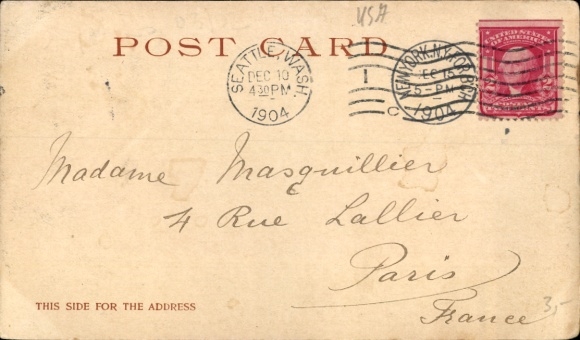 USA
POST CARD
SEATTLE, WASH.
DEC 10
4 30 PM
1904
1
C
NEW YORK, N.Y.
DEC 15
5-PM
1904
UNITED STATES
OF AMERICA
Madame Masquillier
4 Rue Lallier
Paris
France
THIS SIDE FOR THE ADDRESS
3,-